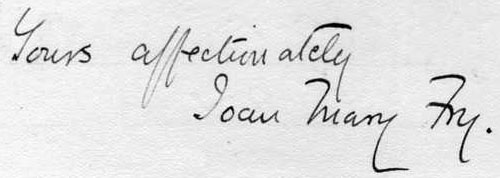 Yours affectionately
Joan Mary Fry.